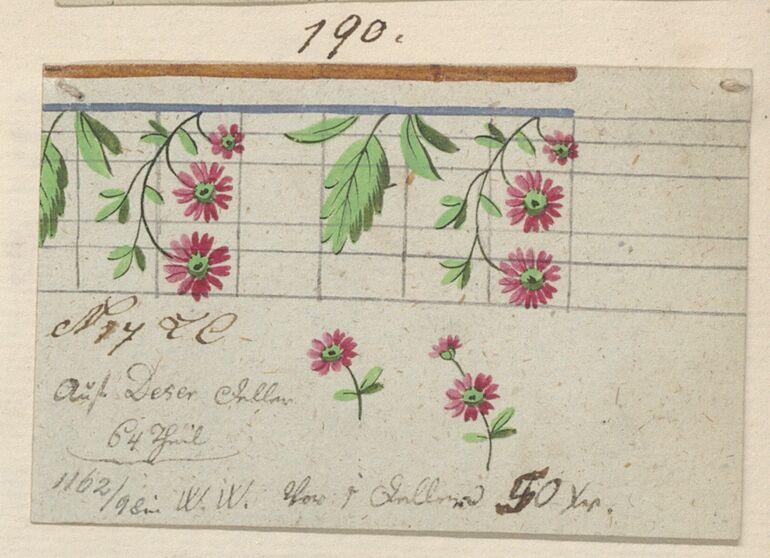 190.
N 17 L C
Auf Deser Teller
64 Theil
1162/98 in W. W. Vor 1 Teller 50 Xr.